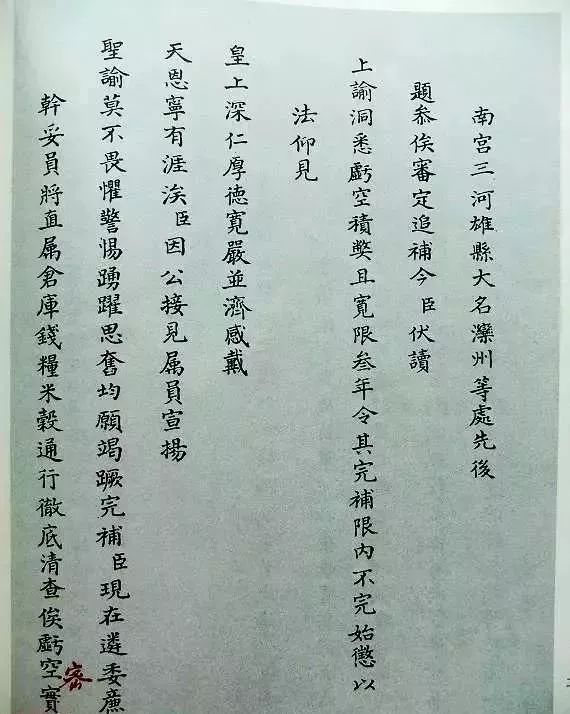 南宫三河雄縣大名灤州等處先後
題參俟審定追補今臣伏讀
上諭洞悉虧空積弊且寬限叁年令其完補限內不完始懲以
法仰見
皇上深仁厚德寬嚴並濟感戴
天恩寧有涯涘臣因公接見属員宣揚
聖諭莫不畏懼警惕踴躍思奮均願竭蹶完補臣現在遴委廉
幹妥員將直属倉庫錢糧米穀通行徹底清查俟虧空實
密